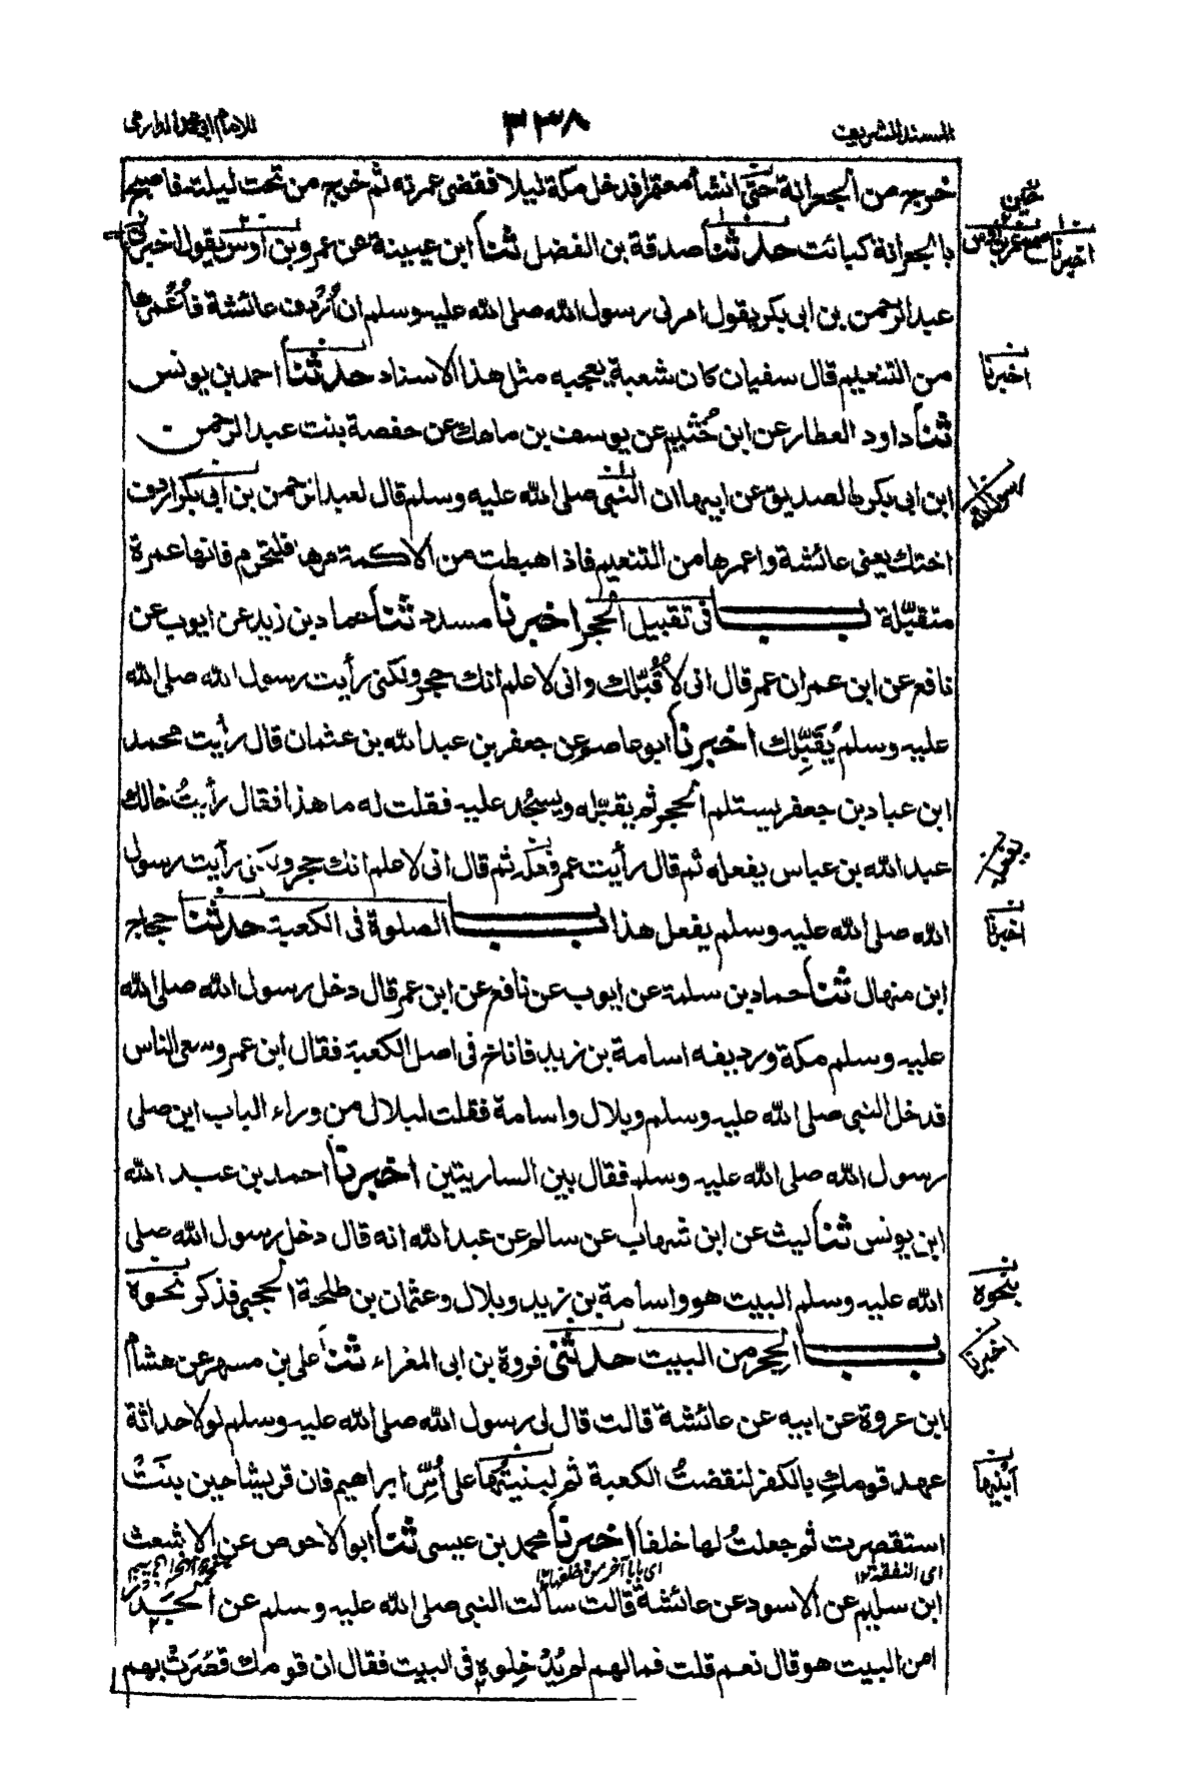 المسند الشريف ٣٣٨ للامام ابي محمد الدارمي
خرج من الجعرانة حتى انشأ معتمرا فدخل مكة ليلا فقضى عمرته ثم خرج من تحت ليلته فاصبح
بالجعرانة كبائت حدثنا صدقة بن الفضل ثنا ابن عيينة عن عمرو بن اوس يقول اخبرني
عبد الرحمن بن ابي بكر يقول امرني رسول الله صلى الله عليه وسلم ان اُرْدِف عائشة فاُعْمِرها
من التنعيم قال سفيان كان شعبة يعجبه مثل هذا الاسناد حدثنا احمد بن يونس
ثنا داود العطار عن ابن خُثيم عن يوسف بن ماهك عن حفصة بنت عبد الرحمن
ابن ابي بكر الصديق عن ابيها ان النبي صلى الله عليه وسلم قال لعبد الرحمن بن ابي بكر اردف
اختك يعني عائشة واعمرها من التنعيم فاذا هبطت من الاكمة مرها فلتحرم فانها عمرة
متقبّلة باب في تقبيل الحجر اخبرنا مسدد ثنا حماد بن زيد عن ايوب عن
نافع عن ابن عمر ان عمر قال اني لاُقبّلك واني لاعلم انك حجر ولكني رأيت رسول الله صلى الله
عليه وسلم يُقَبِّلك اخبرنا ابو عاصم عن جعفر بن عبد الله بن عثمان قال رأيت محمد
ابن عباد بن جعفر يستلم الحجر ثم يقبّله ويسجُد عليه فقلت له ما هذا فقال رأيتُ خالك
عبد الله بن عباس يفعله ثم قال رأيت عمر فعله ثم قال اني لاعلم انك حجر ولكني رأيت رسول
الله صلى الله عليه وسلم يفعل هذا باب الصلوة في الكعبة حدثنا حجاج
ابن منهال ثنا حماد بن سلمة عن ايوب عن نافع عن ابن عمر قال دخل رسول الله صلى الله
عليه وسلم مكة ورديفه اسامة بن زيد فاناخ في اصل الكعبة فقال ابن عمر وسعى الناس
قد خل النبي صلى الله عليه وسلم وبلال واسامة فقلت لبلال من وراء الباب اين صلى
رسول الله صلى الله عليه وسلم فقال بين الساريتين اخبرنا احمد بن عبد الله
ابن يونس ثنا ليث عن ابن شهاب عن سالم عن عبد الله انه قال دخل رسول الله صلى
الله عليه وسلم البيت هو واسامة بن زيد وبلال وعثمان بن طلحة الحجبي فذكر نحوه
باب الحجر من البيت حدثني فروة بن ابي المغراء ثنا علي بن مسهر عن هشام
ابن عروة عن ابيه عن عائشة قالت قال لي رسول الله صلى الله عليه وسلم لولا حداثة
عهد قومكِ بالكفر لنقضتُ الكعبة ثم لبنيتُها على اُسّ ابراهيم فان قريشا حين بنَتْ
استقصرت ثم جعلتُ لها خلفا اخبرنا محمد بن عيسى ثنا ابو الاحوص عن الاشعث
اي النفقة١٢ اي بابا آخر من خلفها١٢
ابن سليم عن الاسود عن عائشة قالت سألت النبي صلى الله عليه وسلم عن الجَدْر
امن البيت هو قال نعم قلت فما لهم لم يُدْخِلوه في البيت فقال ان قومك قصُرَتْ بهم
حين
اخبرنا
اخبرنا
اخبرنا
بنحوه
اخبرنا
اَبْنِيها